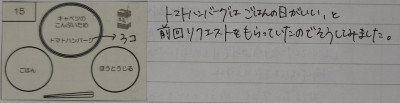 15
キャベツの
こんぶいため
トマトハンバーグ→3コ
ごはん
ほうとうじる
トマトハンバーグはごはんの日がいい、と
前回リクエストをもらっていたのでそうしてみました。